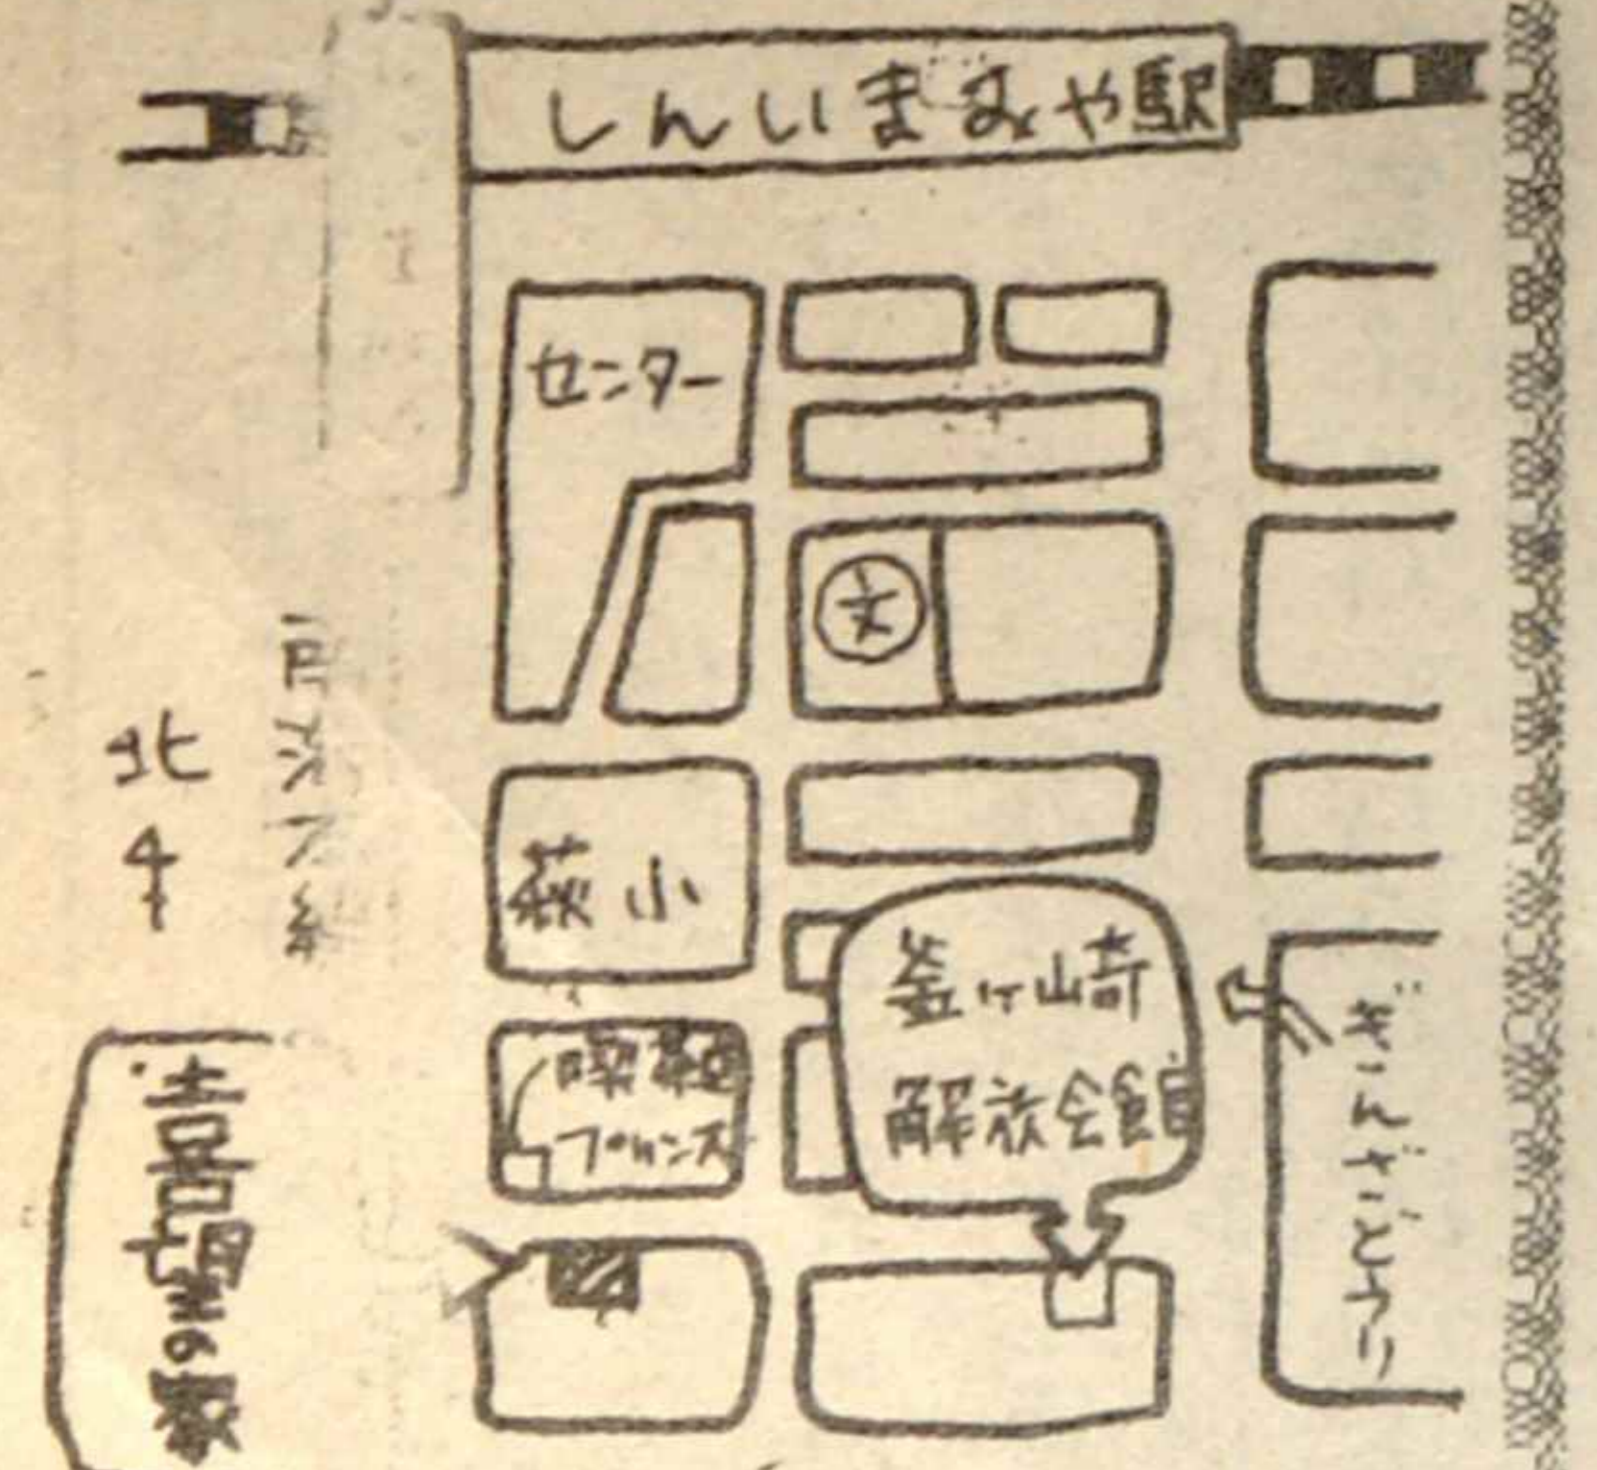 しんいまみや駅
センター
文
北
萩小
釜ヶ崎
解放会館
喫茶
プリンス
ぎんざどうり